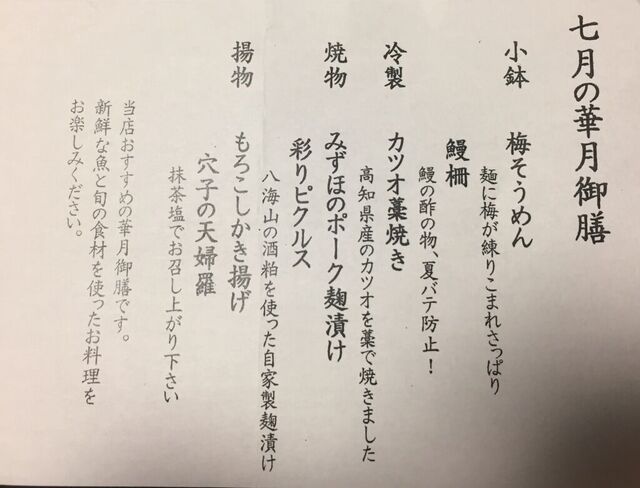 七月の華月御膳
小鉢　梅そうめん
麺に梅が練りこまれさっぱり
鰻柵
鰻の酢の物、夏バテ防止！
冷製　カツオ藁焼き
高知県産のカツオを藁で焼きました
焼物　みずほのポーク麹漬け
彩りピクルス
八海山の酒粕を使った自家製麹漬け
揚物　もろこしかき揚げ
穴子の天婦羅
抹茶塩でお召し上がり下さい
当店おすすめの華月御膳です。
新鮮な魚と旬の食材を使ったお料理を
お楽しみください。